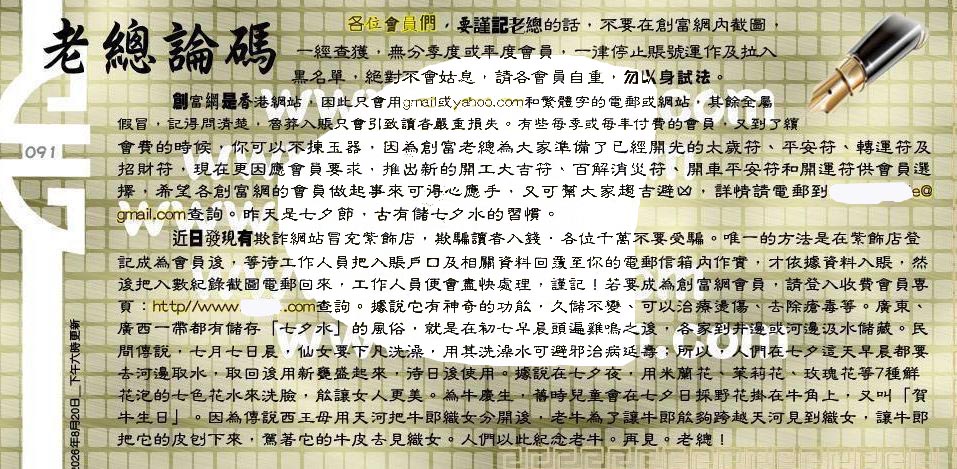 老總論碼
各位會員們，要謹記老總的話，不要在創富網內截圖，
一經查獲，無分季度或年度會員，一律停止賬號運作及拉入
黑名單，絕對不會姑息，請各會員自重，勿以身試法。
創富網是香港網站，因此只會用gmail或yahoo.com和繁體字的電郵或網站，其餘全屬
假冒，記得問清楚，魯莽入賬只會引致讀者嚴重損失。有些每季或每年付費的會員，又到了續
會費的時候，你可以不揀玉器，因為創富老總為大家準備了已經開光的太歲符、平安符、轉運符及
招財符，現在更因應會員要求，推出新的開工大吉符、百解消災符、開車平安符和開運符供會員選
擇，希望各創富網的會員做起事來可得心應手，又可幫大家趨吉避凶，詳情請電郵到 e@
gmail.com查詢。昨天是七夕節，古有儲七夕水的習慣。
近日發現有欺詐網站冒充紫飾店，欺騙讀者入錢，各位千萬不要受騙。唯一的方法是在紫飾店登
記成為會員後，等待工作人員把入賬戶口及相關資料回覆至你的電郵信箱內作實，才依據資料入賬，然
後把入數紀錄截圖電郵回來，工作人員便會盡快處理，謹記！若要成為創富網會員，請登入收費會員專
頁：http//www. .com查詢。據說它有神奇的功能，久儲不變、可以治療燙傷、去除瘡毒等。廣東、
廣西一帶都有儲存「七夕水」的風俗，就是在初七早晨頭遍雞鳴之後，各家到井邊或河邊汲水儲藏。民
間傳說，七月七日晨，仙女要下凡洗澡，用其洗澡水可避邪治病延壽；所以，人們在七夕這天早晨都要
去河邊取水，取回後用新甕盛起來，待日後使用。據說在七夕夜，用米蘭花、茉莉花、玫瑰花等7種鮮
花泡的七色花水來洗臉，能讓女人更美。為牛慶生，舊時兒童會在七夕日採野花掛在牛角上，又叫「賀
牛生日」。因為傳說西王母用天河把牛郎織女分開後，老牛為了讓牛郎能夠跨越天河見到織女，讓牛郎
把它的皮刨下來，駕著它的牛皮去見織女。人們以此紀念老牛。再見。老總！
091
2026年8月20日 下午六時更新